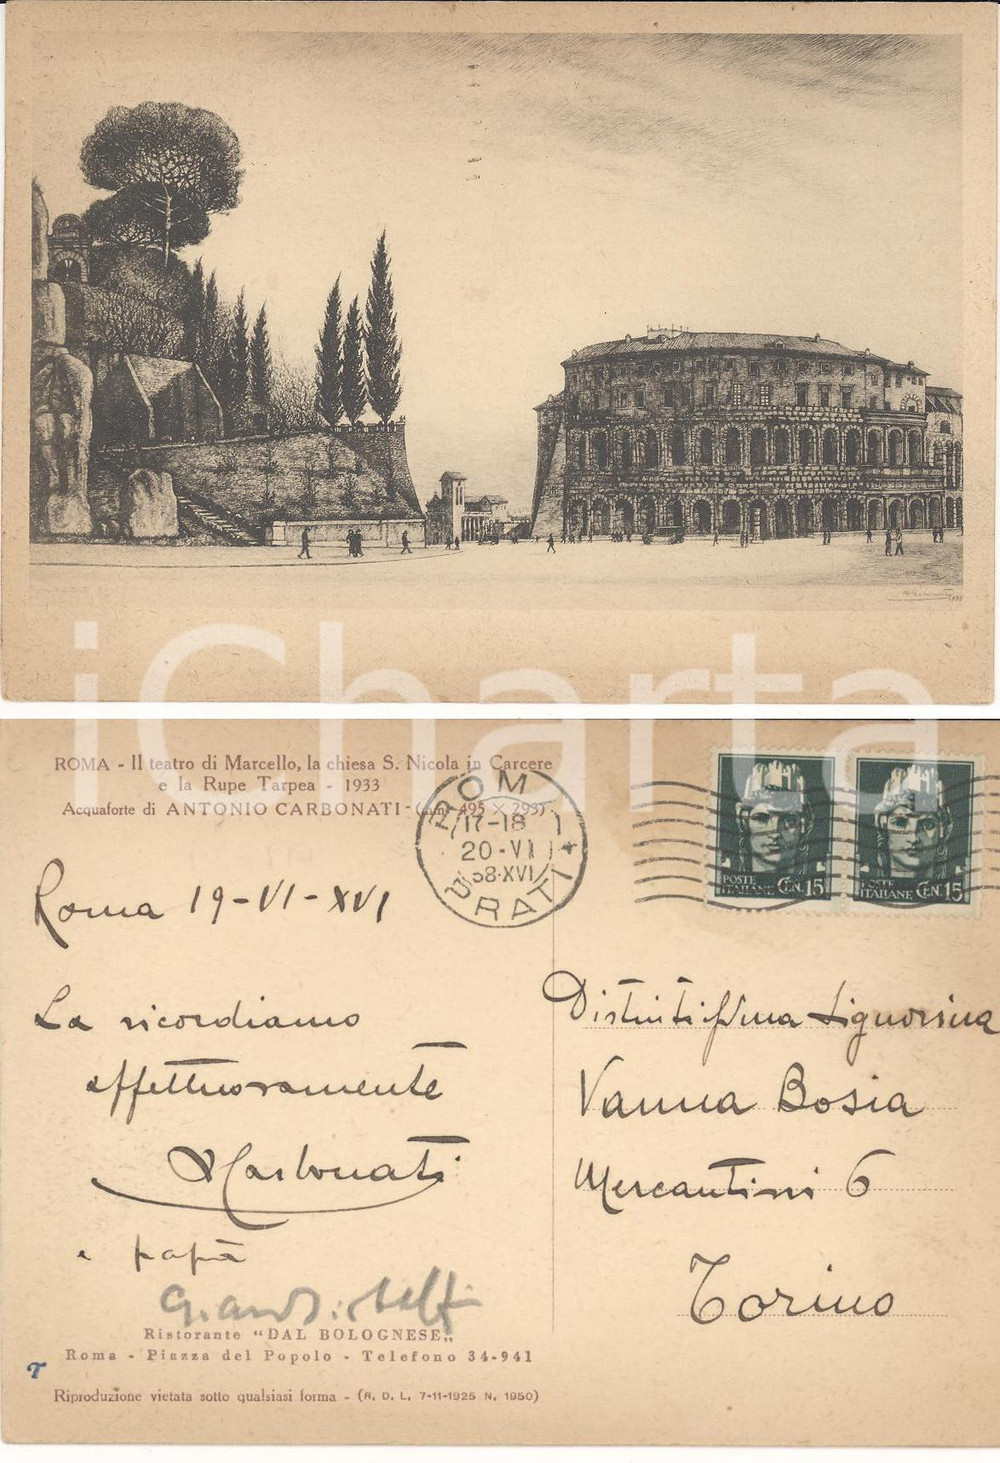 iCharta
ROMA - Il teatro di Marcello, la chiesa S. Nicola in Carcere
e la Rupe Tarpea - 1933
Acquaforte di ANTONIO CARBONATI - (mm. 495 × 293)
ROM
17-18
20-VI
38·XVI
POSTE ITALIANE CEN. 15
POSTE ITALIANE CEN. 15
Roma 19-VI-XVI
La ricordiamo
affettuosamente
ACarbonati
e papà
Ristorante "DAL BOLOGNESE„
Roma - Piazza del Popolo - Telefono 34-941
T
Riproduzione vietata sotto qualsiasi forma - (R. D. L. 7-11-1925 N. 1950)
Distintissima Signorina
Vanna Bosia
Mercantini 6
Torino